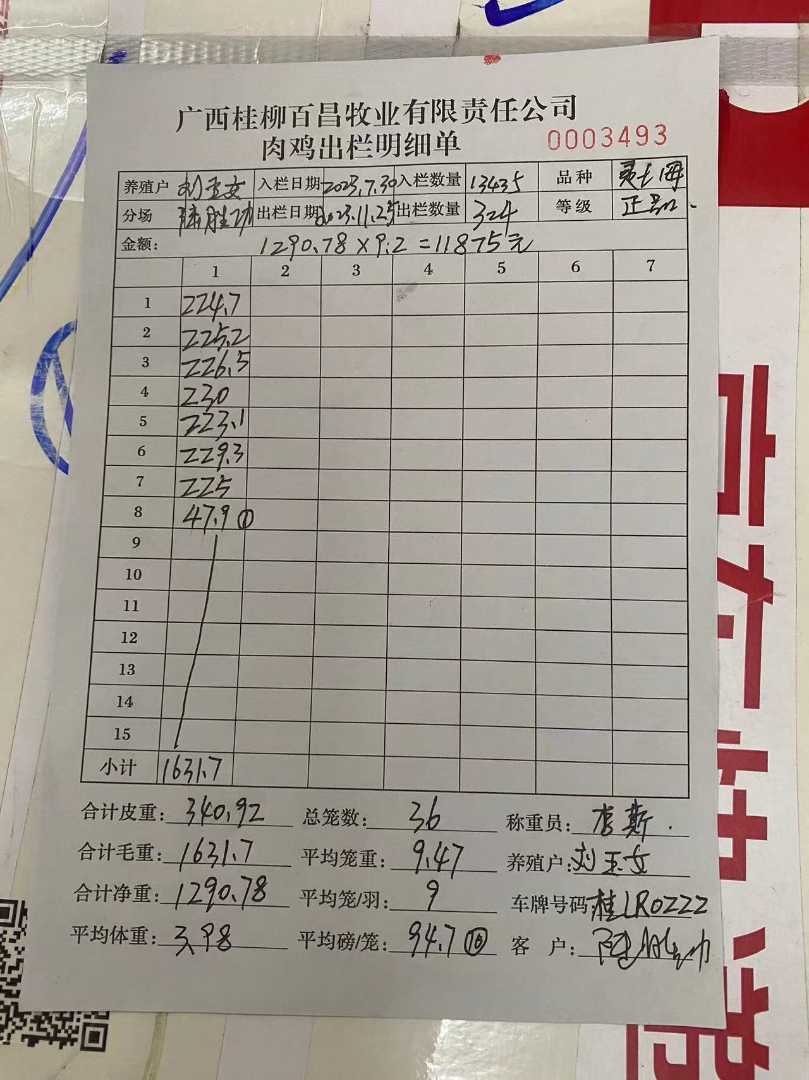 广西桂柳百昌牧业有限责任公司
肉鸡出栏明细单 0003493
养殖户 刘玉女 入栏日期 2023.7.30 入栏数量 13435 品种
分场 出栏日期 2023.11.25 出栏数量 324 等级 正品
金额: 1290.78×9.2=11875元
1 2 3 4 5 6 7
1 224.7
2 225.2
3 226.5
4 230
5 223.1
6 229.3
7 225
8 47.9 ①
9
10
11
12
13
14
15
小计 1631.7
合计皮重: 340.92 总笼数: 36 称重员: 李斯
合计毛重: 1631.7 平均笼重: 9.47 养殖户: 刘玉女
合计净重: 1290.78 平均笼/羽: 9 车牌号码: 桂LR0222
平均体重: 3.98 平均磅/笼: 94.7 ⑯ 客户: